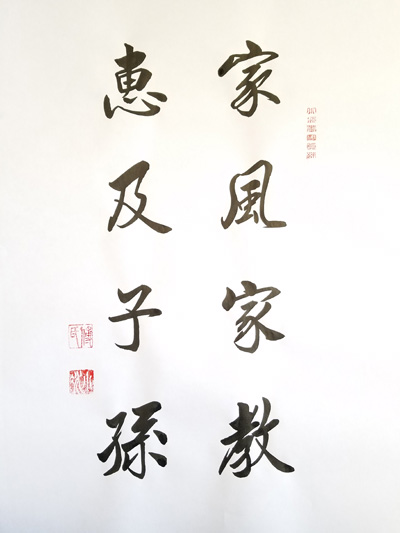 家風家教
惠及子孫